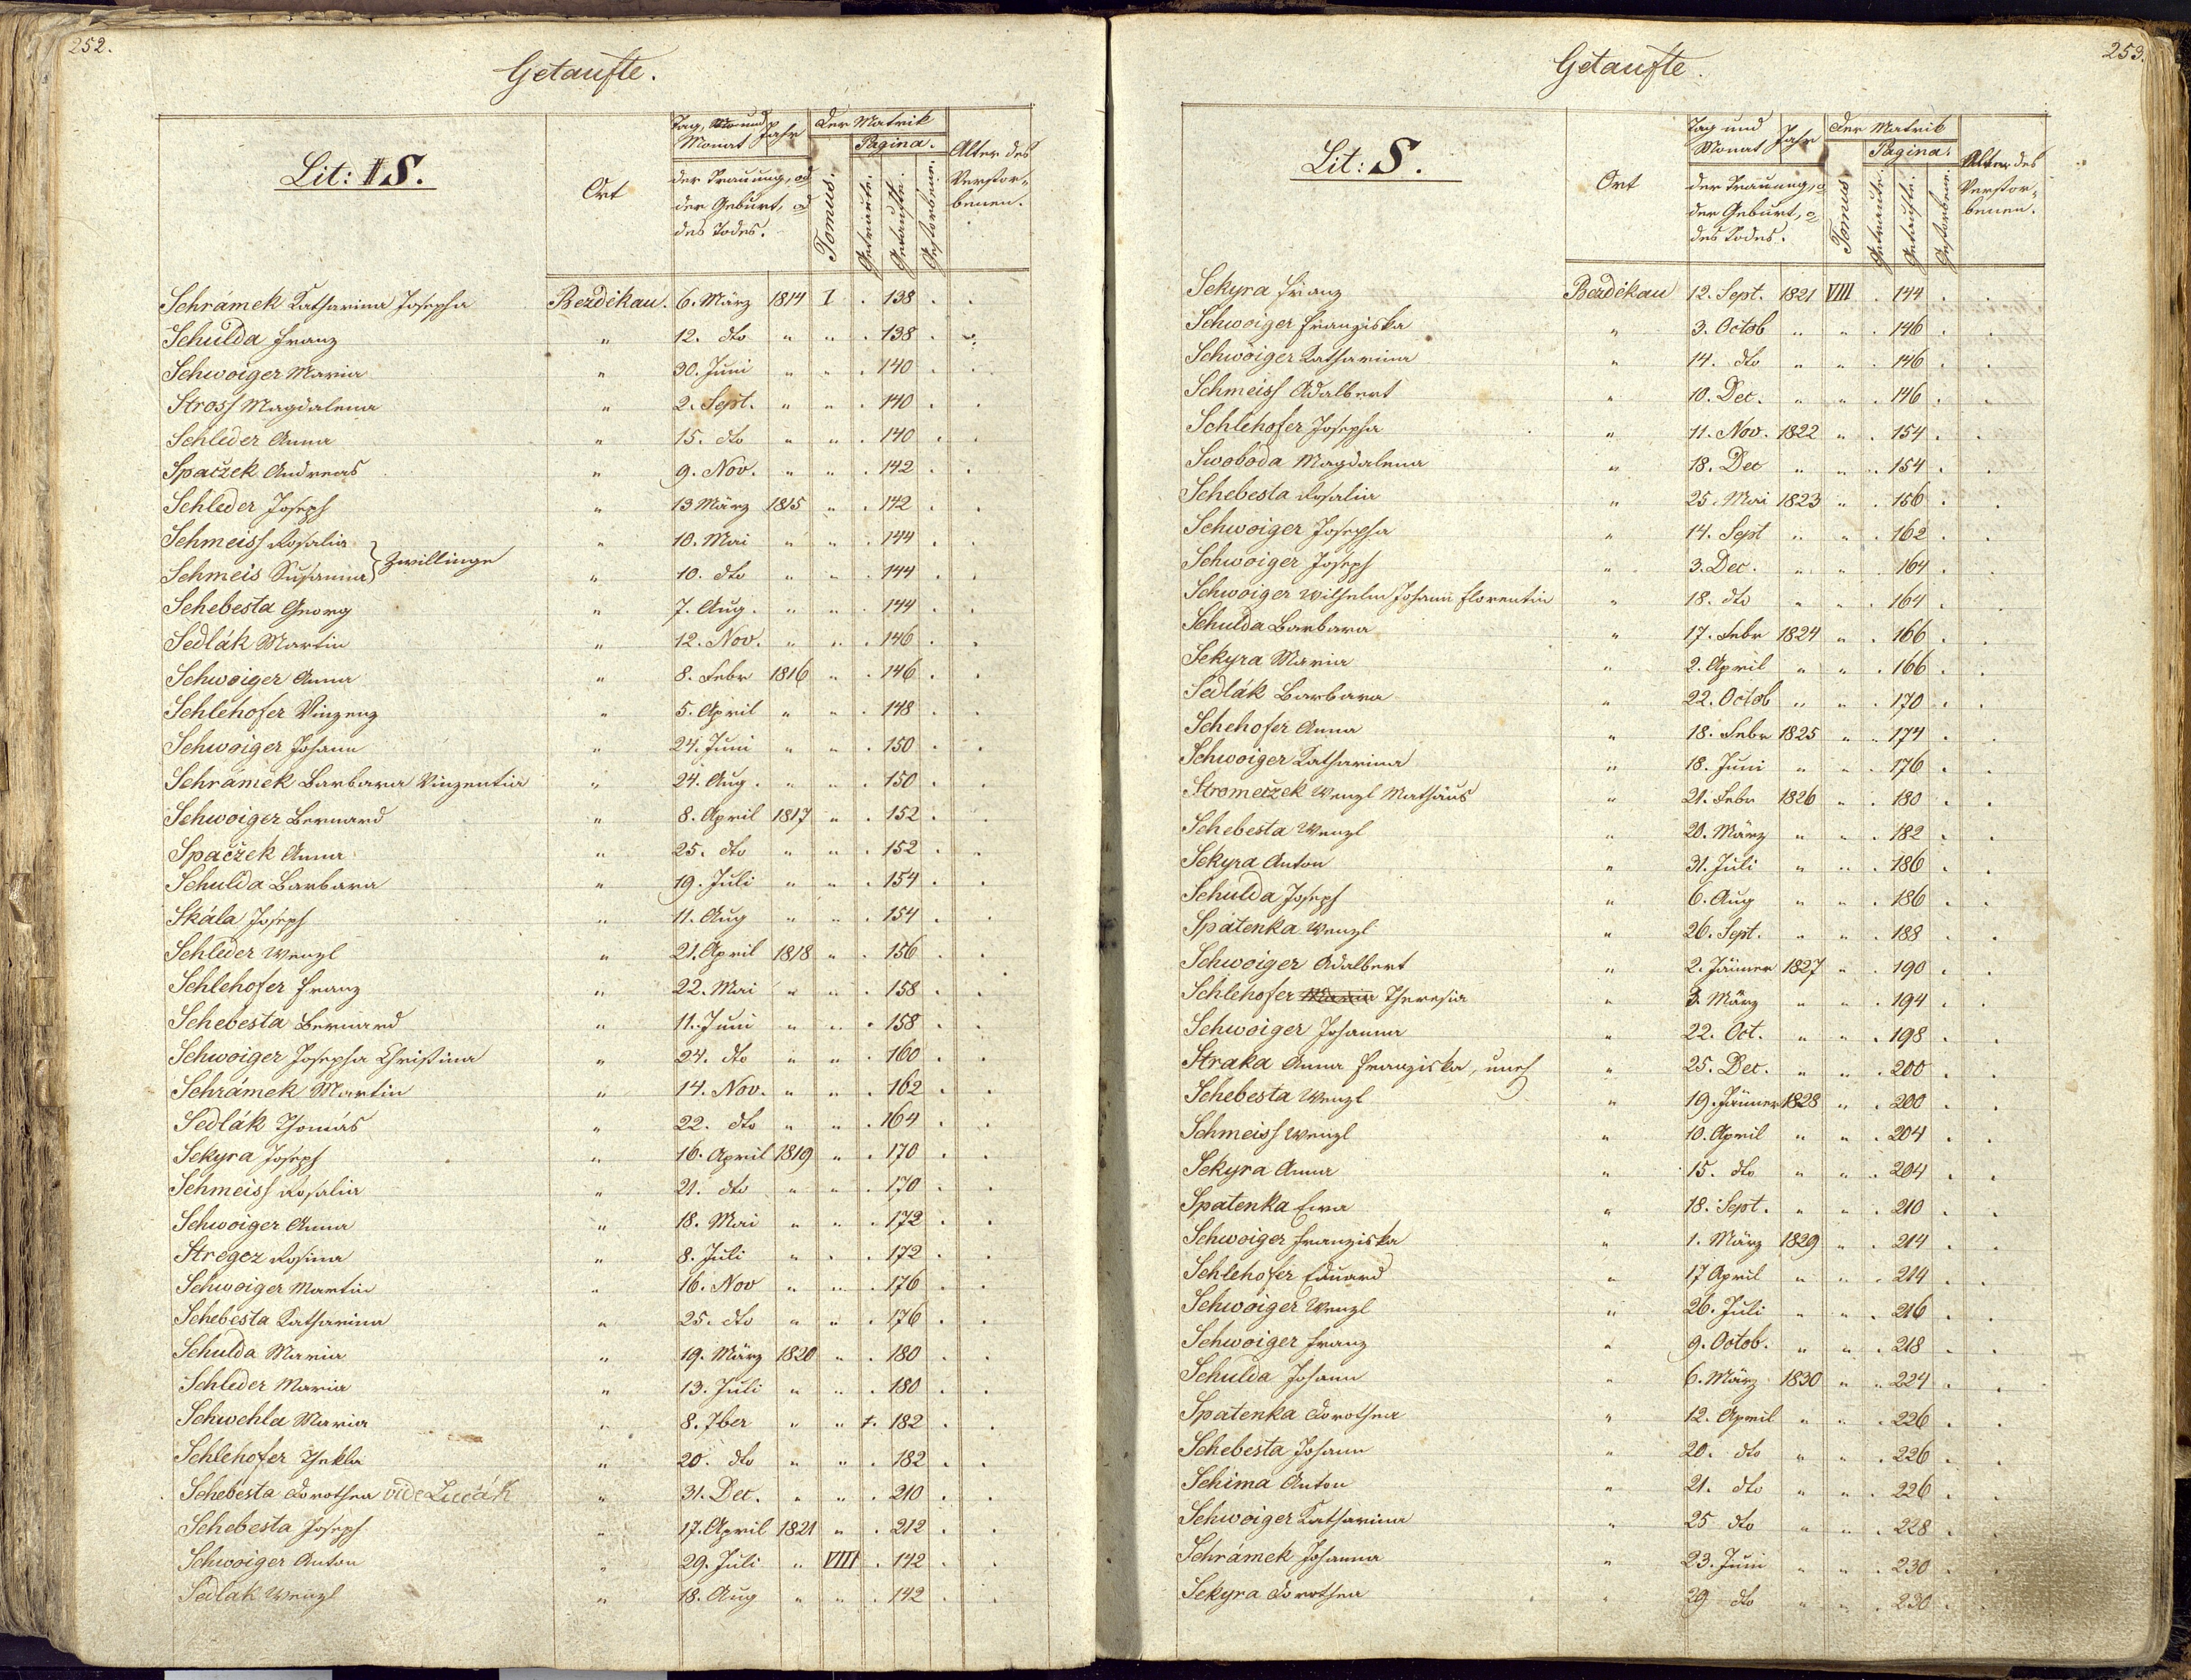 252.
Getaufte.
Lit: S.
Ort
Tag, und Monat
Jahr
der Trauung, od der Geburt, od des Todes.
der Matrik
Tomus.
Pagina.
Getraute.
Getaufte.
Gestorbene.
Alter des Verstorbenen.
Schrámek Katharina Josepha Bezděkau. 6. März 1814 I . 138 . .
Schulda Franz " 12. dto " " . 138 . .
Schwoiger Maria " 30. Juni " " . 140 . .
Stross Magdalena " 2. Sept. " " . 140 . .
Schleder Anna " 15. dto " " . 140 . .
Spaczek Andreas " 9. Nov. " " . 142 . .
Schleder Joseph " 13 März 1815 " . 142 . .
Schmeiss Rosalia " 10. Mai " " . 144 . .
Zwillinge
Schmeis Susanna " 10. dto " " . 144 . .
Schebesta Georg " 7. Aug. " " . 144 . .
Sedlák Martin " 12. Nov. " " . 146 . .
Schwoiger Anna " 8. Febr 1816 " . 146 . .
Schlehofer Vinzenz " 5. April " " . 148 . .
Schwoiger Johann " 24. Juni " " . 150 . .
Schrámek Barbara Vinzentia " 24. Aug. " " . 150 . .
Schwoiger Bernard " 8. April 1817 " . 152 . .
Spaczek Anna " 25. dto " " . 152 . .
Schulda Barbara " 19. Juli " " . 154 . .
Skála Joseph " 11. Aug " " . 154 . .
Schleder Wenzl " 21. April 1818 " . 156 . .
Schlehofer Franz " 22. Mai " " . 158 . .
Schebesta Bernard " 11. Juni " " . 158 . .
Schwoiger Josepha Christina " 24. dto " " . 160 . .
Schrámek Martin " 14. Nov. " " . 162 . .
Sedlák Thomas " 22. dto " " . 164 . .
Sekyra Joseph " 16. April 1819 " . 170 . .
Schmeiss Rosalia " 21. dto " " . 170 . .
Schwoiger Anna " 18. Mai " " . 172 . .
Stregez Rosina " 8. Juli " " . 172 . .
Schwoiger Martin " 16. Nov " " . 176 . .
Schebesta Katharina " 25. dto " " . 176 . .
Schulda Maria " 19. März 1820 " . 180 . .
Schleder Maria " 13. Juli " " . 180 . .
Schwehla Maria " 8. 7ber " " . 182 . .
Schlehofer Thekla " 20. dto " " . 182 . .
Schebesta Dorothea vide Lucák " 31. Dec. " " . 210 . .
Schebesta Joseph " 17. April 1821 " . 212 . .
Schwoiger Anton " 29. Juli " VIII . 142 . .
Sedlak Wenzl " 18. Aug " " . 142 . .
253.
Getaufte.
Lit: S.
Ort
Tag und Monat
Jahr
der Trauung, o der Geburt, o des Todes.
der Matrik
Tomus.
Pagina.
Getraute.
Getaufte.
Gestorbene.
Alter des Verstorbenen.
Sekyra Franz Bezděkau 12. Sept. 1821 VIII . 144 . .
Schwoiger Franziska " 3. Octob " " . 146 . .
Schwoiger Katharina " 14. dto " " . 146 . .
Schmeiss Adalbert " 10. Dec. " " . 146 . .
Schlehofer Josepha " 11. Nov. 1822 " . 154 . .
Swoboda Magdalena " 18. Dec " " . 154 . .
Schebesta Rosalia " 25. Mai 1823 " . 156 . .
Schwoiger Josepha " 14. Sept " " . 162 . .
Schwoiger Joseph " 3. Dec. " " . 164 . .
Schwoiger Wilhelm Johann Florentin " 18. dto " " . 164 . .
Schulda Barbara " 17. Febr 1824 " . 166 . .
Sekyra Maria " 2. April " " . 166 . .
Sedlák Barbara " 22. Octob " " . 170 . .
Schehofer Anna " 18. Febr 1825 " . 174 . .
Schwoiger Katharina " 18. Juni " " . 176 . .
Strometzek Wenzl Mathäus " 21. Febr 1826 " . 180 . .
Schebesta Wenzl " 20. März " " . 182 . .
Sekyra Anton " 31. Juli " " . 186 . .
Schulda Joseph " 6. Aug " " . 186 . .
Spatenka Wenzl " 26. Sept. " " . 188 . .
Schwoiger Adalbert " 2. Jänner 1827 " . 190 . .
Schlehofer Maria Theresia " 3. März " " . 194 . .
Schwoiger Johanna " 22. Oct. " " . 198 . .
Straka Anna Franziska, uneh " 25. Dec. " " . 200 . .
Schebesta Wenzl " 19. Jänner 1828 " . 200 . .
Schmeiss Wenzl " 10. April " " . 204 . .
Sekyra Anna " 15. dto " " . 204 . .
Spatenka Ewa " 18. Sept. " " . 210 . .
Schwoiger Franziska " 1. März 1829 " . 214 . .
Schlehofer Eduard " 17 April " " . 214 . .
Schwoiger Wenzl " 26. Juli " " . 216 . .
Schwoiger Franz " 9. Octob. " " . 218 . .
Schulda Johann " 6. März 1830 " . 224 . .
Spatenka Dorothea " 12. April " " . 226 . .
Schebesta Johann " 20. dto " " . 226 . .
Schima Anton " 21. dto " " . 226 . .
Schwoiger Katharina " 25 dto " " . 228 . .
Schrámek Johanna " 23. Juni " " . 230 . .
Sekyra Dorothea " 29 dto " " . 230 . .